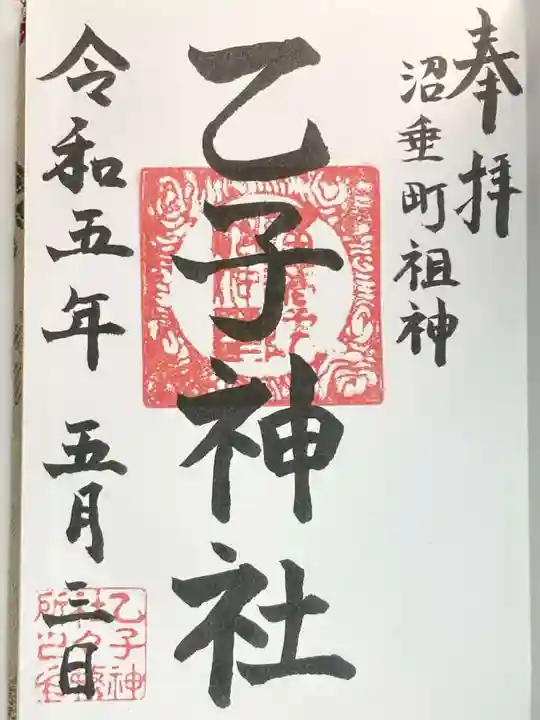 奉拝
沼垂町祖神
乙子神社
令和五年 五月三日
乙子神
社務
所之